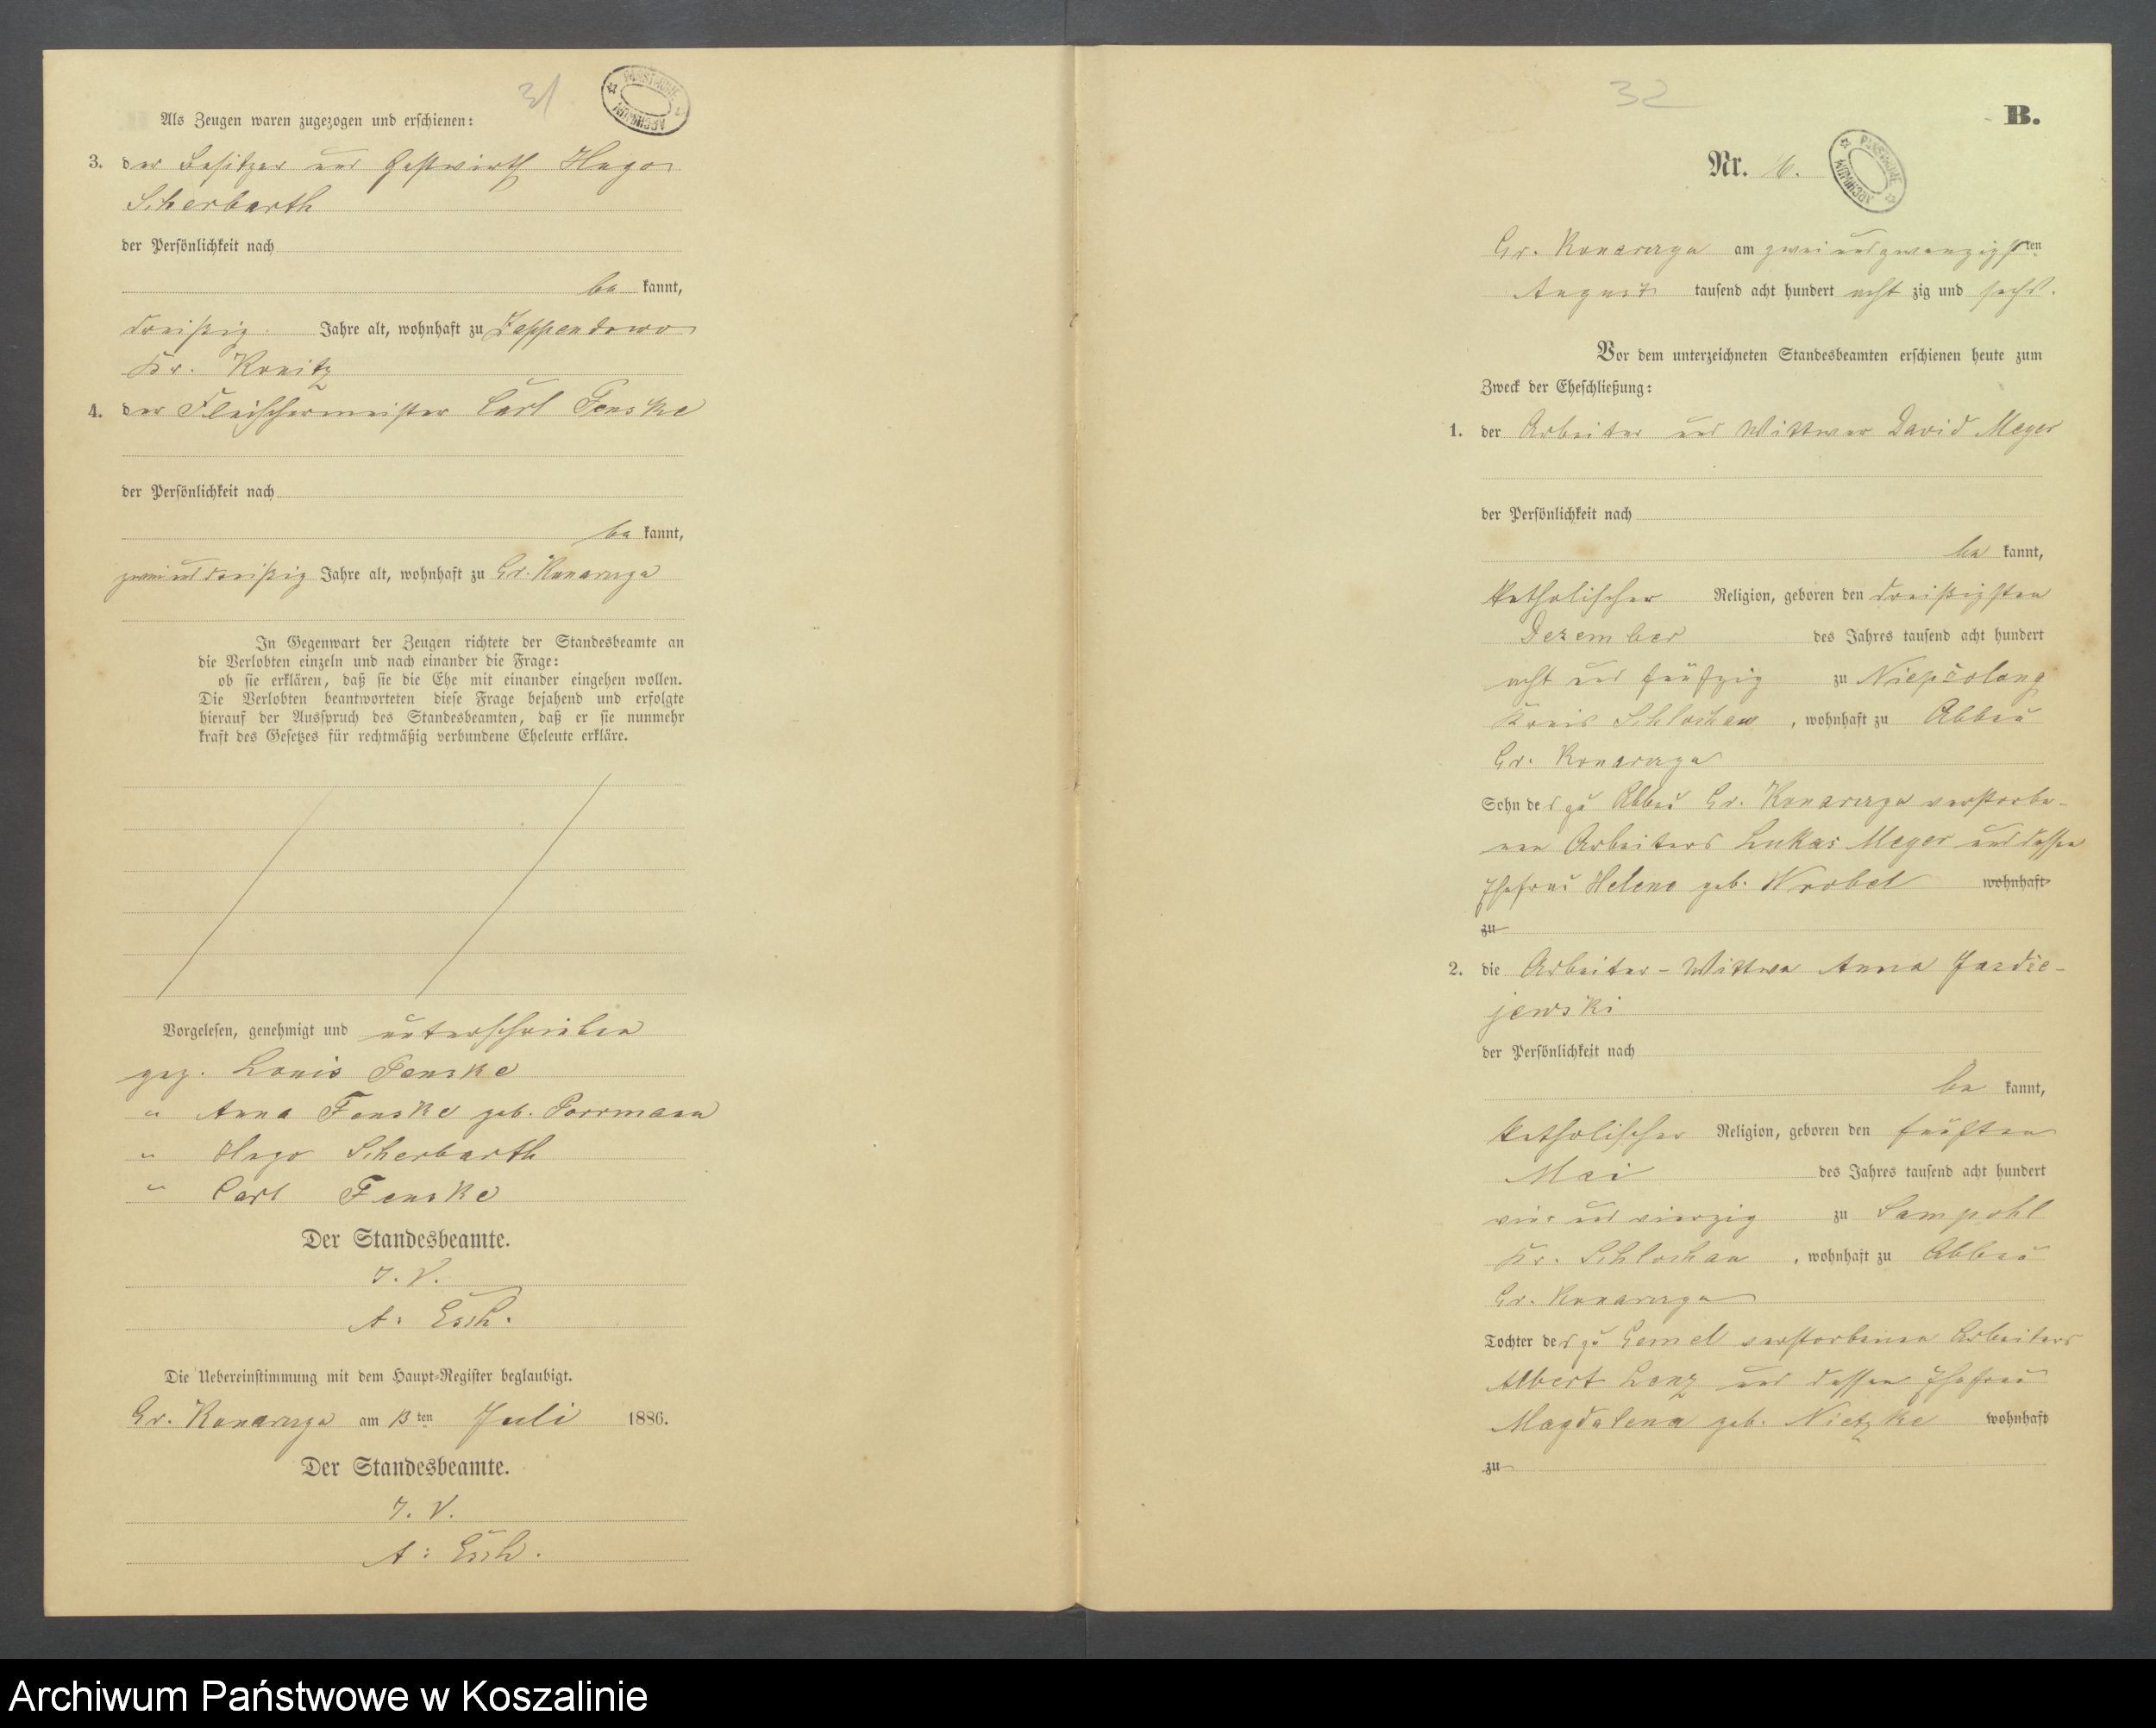 31
PAŃSTWOWE ARCHIWUM
Als Zeugen waren zugezogen und erschienen:
3. der Besitzer und Gastwirth Hugo
Scherbarth
der Persönlichkeit nach
be kannt,
dreißig Jahre alt, wohnhaft zu Zappendowo
Kr. Konitz
4. der Fleischermeister Carl Fenske
der Persönlichkeit nach
be kannt,
zweiunddreißig Jahre alt, wohnhaft zu Gr. Konarczyn
In Gegenwart der Zeugen richtete der Standesbeamte an
die Verlobten einzeln und nach einander die Frage:
ob sie erklären, daß sie die Ehe mit einander eingehen wollen.
Die Verlobten beantworteten diese Frage bejahend und erfolgte
hierauf der Ausspruch des Standesbeamten, daß er sie nunmehr
kraft des Gesetzes für rechtmäßig verbundene Eheleute erkläre.
Vorgelesen, genehmigt und unterschrieben
gez. Louis Fenske
" Anna Fenske geb. Porrmann
" Hugo Scherbarth
" Carl Fenske
Der Standesbeamte.
I. V.
A: Esch.
Die Uebereinstimmung mit dem Haupt-Register beglaubigt.
Gr. Konarczyn am 13 ten Juli 1886.
Der Standesbeamte.
I. V.
A: Esch.
32
B.
Nr. 16.
PAŃSTWOWE ARCHIWUM
Gr. Konarczyn am zweiundzwanzigsten
August tausend acht hundert acht zig und sechs.
Vor dem unterzeichneten Standesbeamten erschienen heute zum
Zweck der Eheschließung:
1. der Arbeiter und Wittwer David Meyer
der Persönlichkeit nach
be kannt,
katholischer Religion, geboren den dreißigsten
Dezember des Jahres tausend acht hundert
acht und fünfzig zu
Kreis Schlochau, wohnhaft zu Abbau
Gr. Konarczyn
Sohn des zu Abbau Gr. Konarczyn verstorbe-
nen Arbeiters Lukas Meyer und dessen
Ehefrau Helene geb. Wrobel wohnhaft
zu
2. die Arbeiter-Wittwe Anna Jazdze-
jewski
der Persönlichkeit nach
be kannt,
katholischer Religion, geboren den fünften
Mai des Jahres tausend acht hundert
vier und vierzig zu Sampohl
Kr. Schlochau, wohnhaft zu Abbau
Gr. Konarczyn
Tochter des zu Gemel verstorbenen Arbeiters
Albert Lenz und dessen Ehefrau
Magdalena geb. Nietzke wohnhaft
zu
Archiwum Państwowe w Koszalinie